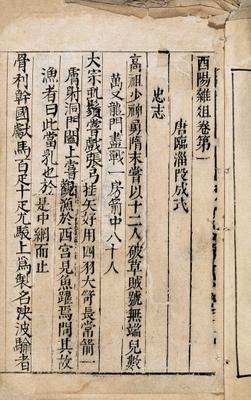 酉陽雜俎卷第一
唐臨淄段成式
忠志
高祖少神勇隋末嘗以十二人破草賊號無端兒數
萬又龍門盡戰一房箭中八十人
大宗虬鬚嘗戲張弓挂矢好用四羽大笴長常箭一
膚射洞門闔上嘗觀漁於西宮見魚躍焉問其故
漁者曰此當乳也於是中網而止
骨利幹國獻馬百疋十疋尤駿上爲製名決波騟者